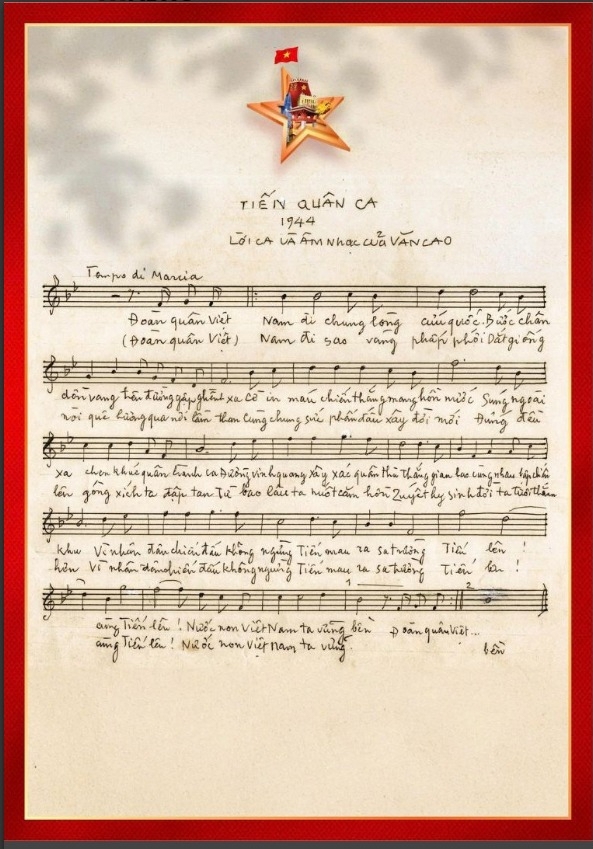 TIẾN QUÂN CA
1944
LỜI CA VÀ ÂM NHẠC CỦA VĂN CAO
Tempo di Marcia
Đoàn quân Việt Nam đi chung lòng cứu quốc. Bước chân
(Đoàn quân Việt) Nam đi sao vàng phấp phới Dắt giống
dồn vang trên đường gập ghềnh xa Cờ in máu chiến thắng mang hồn nước Súng ngoài
nòi quê hương qua nơi lầm than Cùng chung sức phấn đấu xây đời mới Đứng đều
xa chen khúc quân hành ca Đường vinh quang xây xác quân thù Thắng gian lao cùng nhau lập chiến
lên gông xích ta đập tan Từ bao lâu ta nuốt căm hờn Quyết hy sinh đời ta tươi thắm
khu Vì nhân dân chiến đấu không ngừng Tiến mau ra sa trường Tiến lên !
hơn Vì nhân dân chiến đấu không ngừng Tiến mau ra sa trường Tiến lên !
cùng Tiến lên ! Nước non Việt Nam ta vững bền Đoàn quân Việt...
cùng Tiến lên ! Nước non Việt Nam ta vững bền